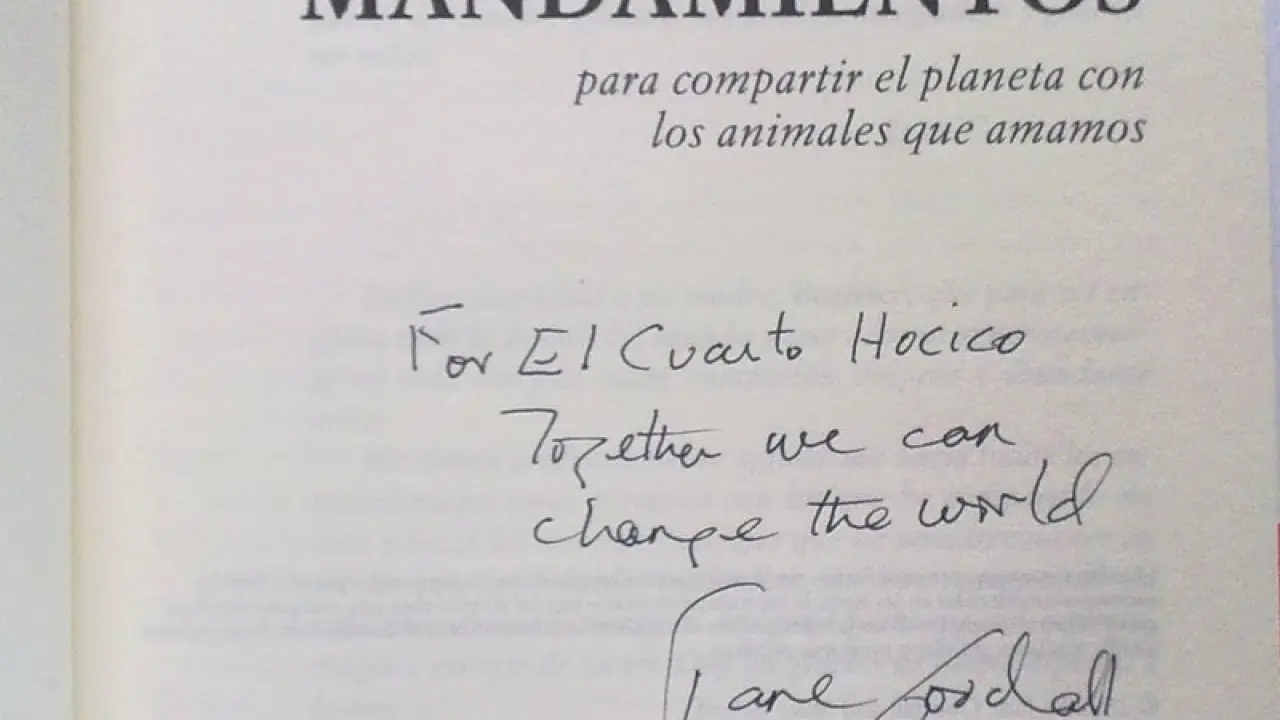 MANDAMIENTOS
para compartir el planeta con
los animales que amamos
For El Cuarto Hocico
Together we can
change the world
Jane Goodall